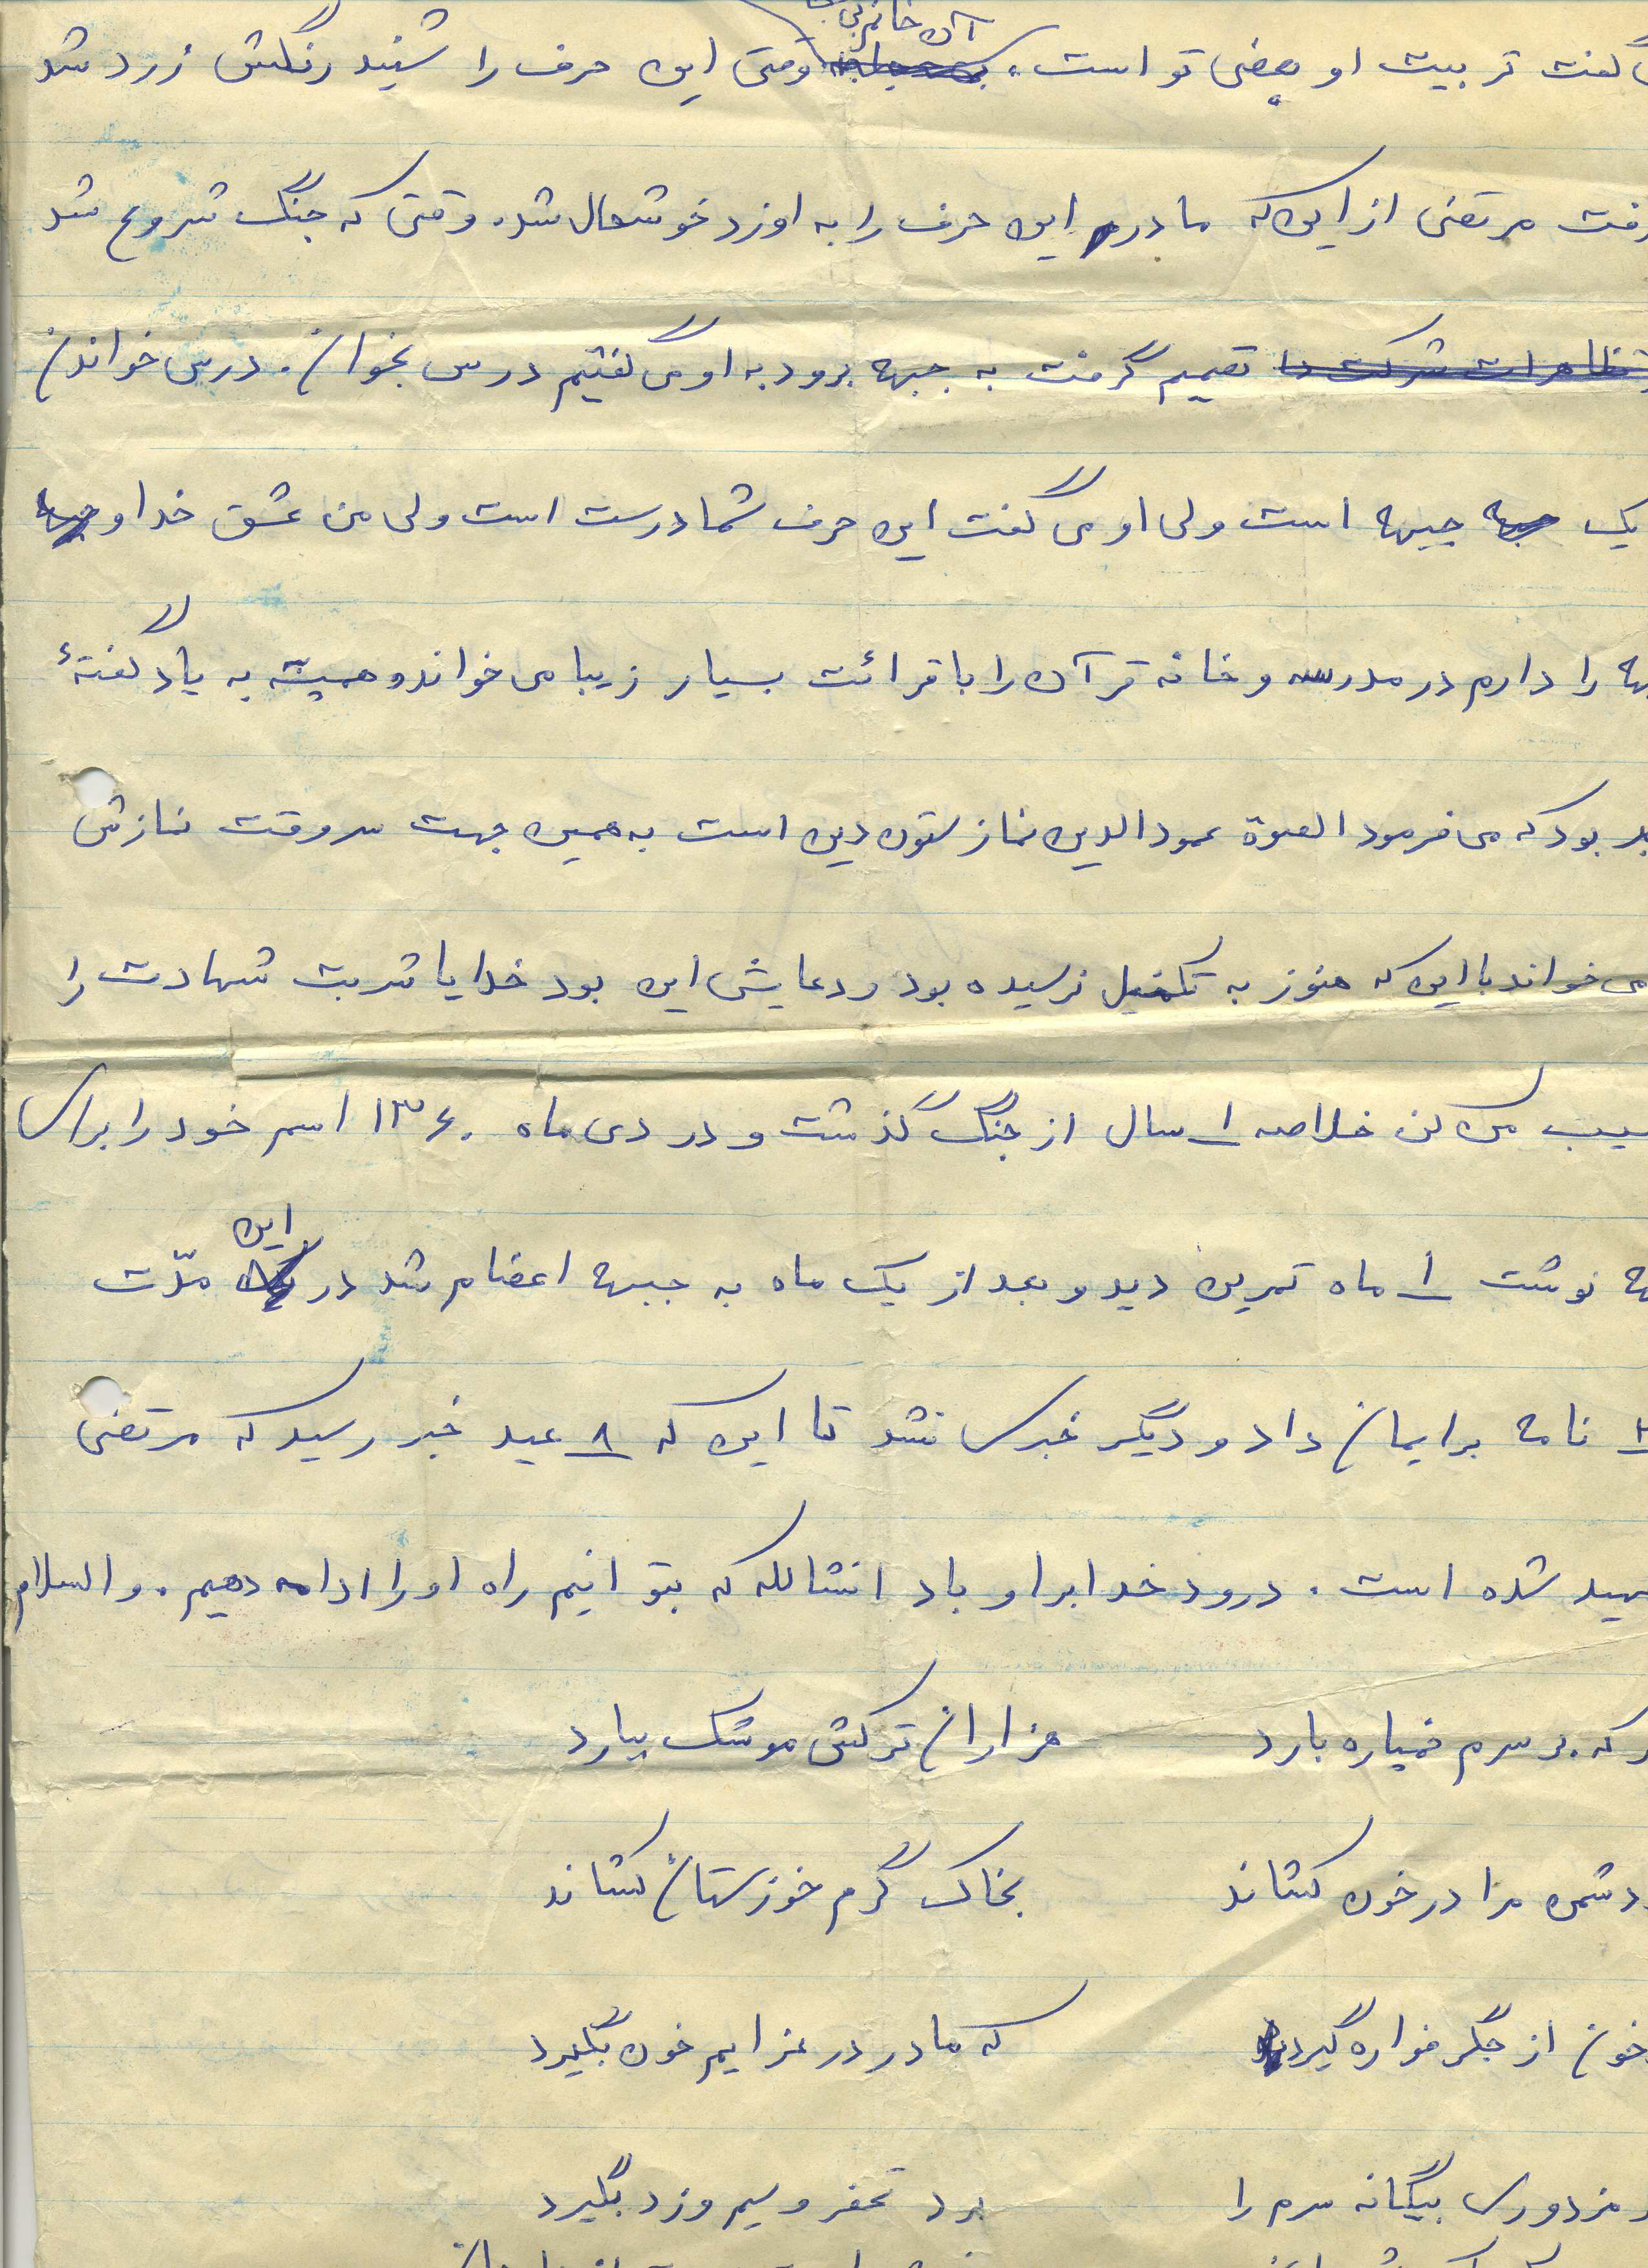 آن خانم بی
گفت تربیت او بعضی تو است، وقتی این حرف را شنید رنگش زرد شد
رفت مرتضی از این که مادرم این حرف را به او زد خوشحال شد. وقتی که جنگ شروع شد
تظاهرات شرکت تصمیم گرفت به جبهه برود به او می گفتیم درس بخوان. درس خواندن
یک جبهه است ولی او می گفت این حرف شما درست است ولی من عشق خدا و
را دارم در مدرسه و خانه قرآن را با قرائت بسیار زیبا می خواند و همیشه به یاد گفتهٔ
بود که می فرمود الصلوة عمود الدین نماز ستون دین است به همین جهت سر وقت نمازش
می خواند با این که هنوز به تکلیف نرسیده بود و دعایش این بود خدایا شربت شهادت را
کن خلاصه ۱ سال از جنگ گذشت و در دی ماه ۱۳۶۰ اسم خود را برای
نوشت ۱ ماه تمرین دید و بعد از یک ماه به جبهه اعضام شد در این مدّت
نامه برایمان داد و دیگر خبری نشد تا این که ۸ عید خبر رسید که مرتضی
شده است. درود خدا بر او باد انشالله که بتوانیم راه او را ادامه دهیم. والسلام
که بر سرم خمپاره بارد هزاران ترکش موشک ببارد
دشمن مرا در خون کشاند بخاک گرم خوزستان کشاند
خون از جگر فواره گیرد که مادر در عزایم خون بگیرد
مزدوری بیگانه سرم را برد تحفر و سیم و زد بگیرد